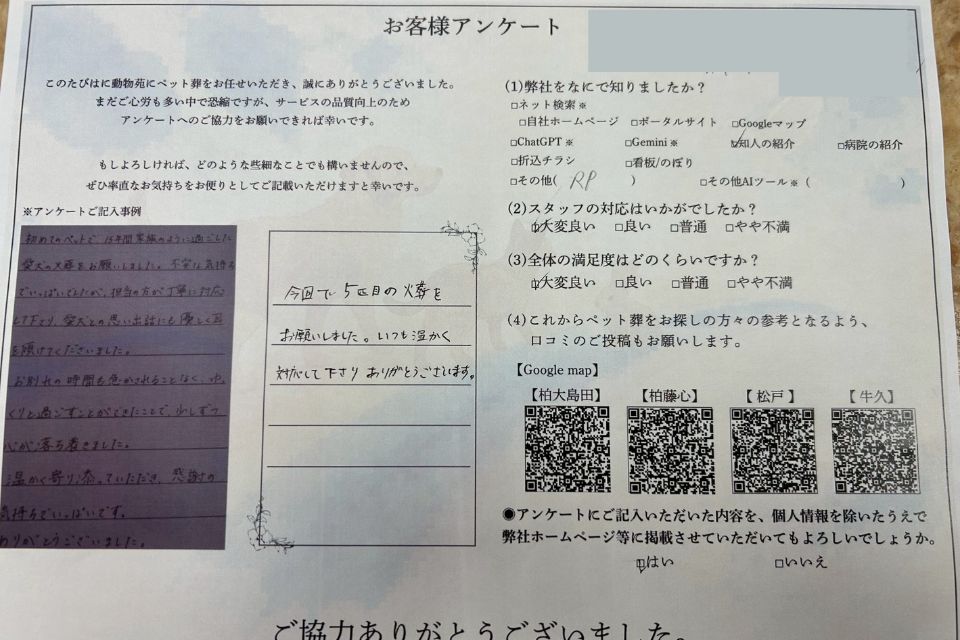 お客様アンケート
このたびはに動物苑にペット葬をお任せいただき、誠にありがとうございました。
まだご心労も多い中で恐縮ですが、サービスの品質向上のため
アンケートへのご協力をお願いできれば幸いです。
もしよろしければ、どのような些細なことでも構いませんので、
ぜひ率直なお気持ちをお便りとしてご記載いただけますと幸いです。
※アンケートご記入事例
初めてのペットで、15年間家族のように過ごした
愛犬の火葬をお願いしました。不安な気持ち
でいっぱいでしたが、担当の方が丁寧に対応
して下さり、愛犬との思い出話にも優しく耳
を傾けてくださいました。
お別れの時間も急かされることなく、ゆっ
くりと過ごすことができたことで、少しずつ
心が落ち着きました。
温かく寄り添っていただき、感謝の
気持ちでいっぱいです。
ありがとうございました。
今回で5匹目の火葬を
お願いしました。いつも温かく
対応して下さり ありがとうございます。
(1)弊社をなにで知りましたか？
□ネット検索※
□自社ホームページ □ポータルサイト □Googleマップ
□ChatGPT※ □Gemini※ □知人の紹介 □病院の紹介
□折込チラシ □看板/のぼり
□その他( RP ) □その他AIツール※( )
(2)スタッフの対応はいかがでしたか？
□大変良い □良い □普通 □やや不満
(3)全体の満足度はどのくらいですか？
□大変良い □良い □普通 □やや不満
(4)これからペット葬をお探しの方々の参考となるよう、
口コミのご投稿もお願いします。
【Google map】
【柏大島田】 【柏藤心】 【松戸】 【牛久】
◉アンケートにご記入いただいた内容を、個人情報を除いたうえで
弊社ホームページ等に掲載させていただいてもよろしいでしょうか。
□はい □いいえ
ご協力ありがとうございました。